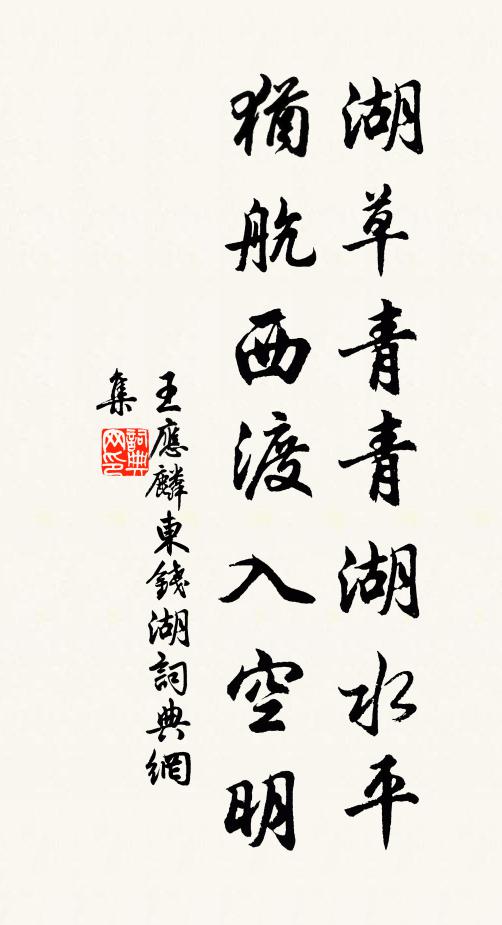 湖草青青湖水平
猶航西渡入空明
王應麟東錢湖詞典網
集
詞典网印